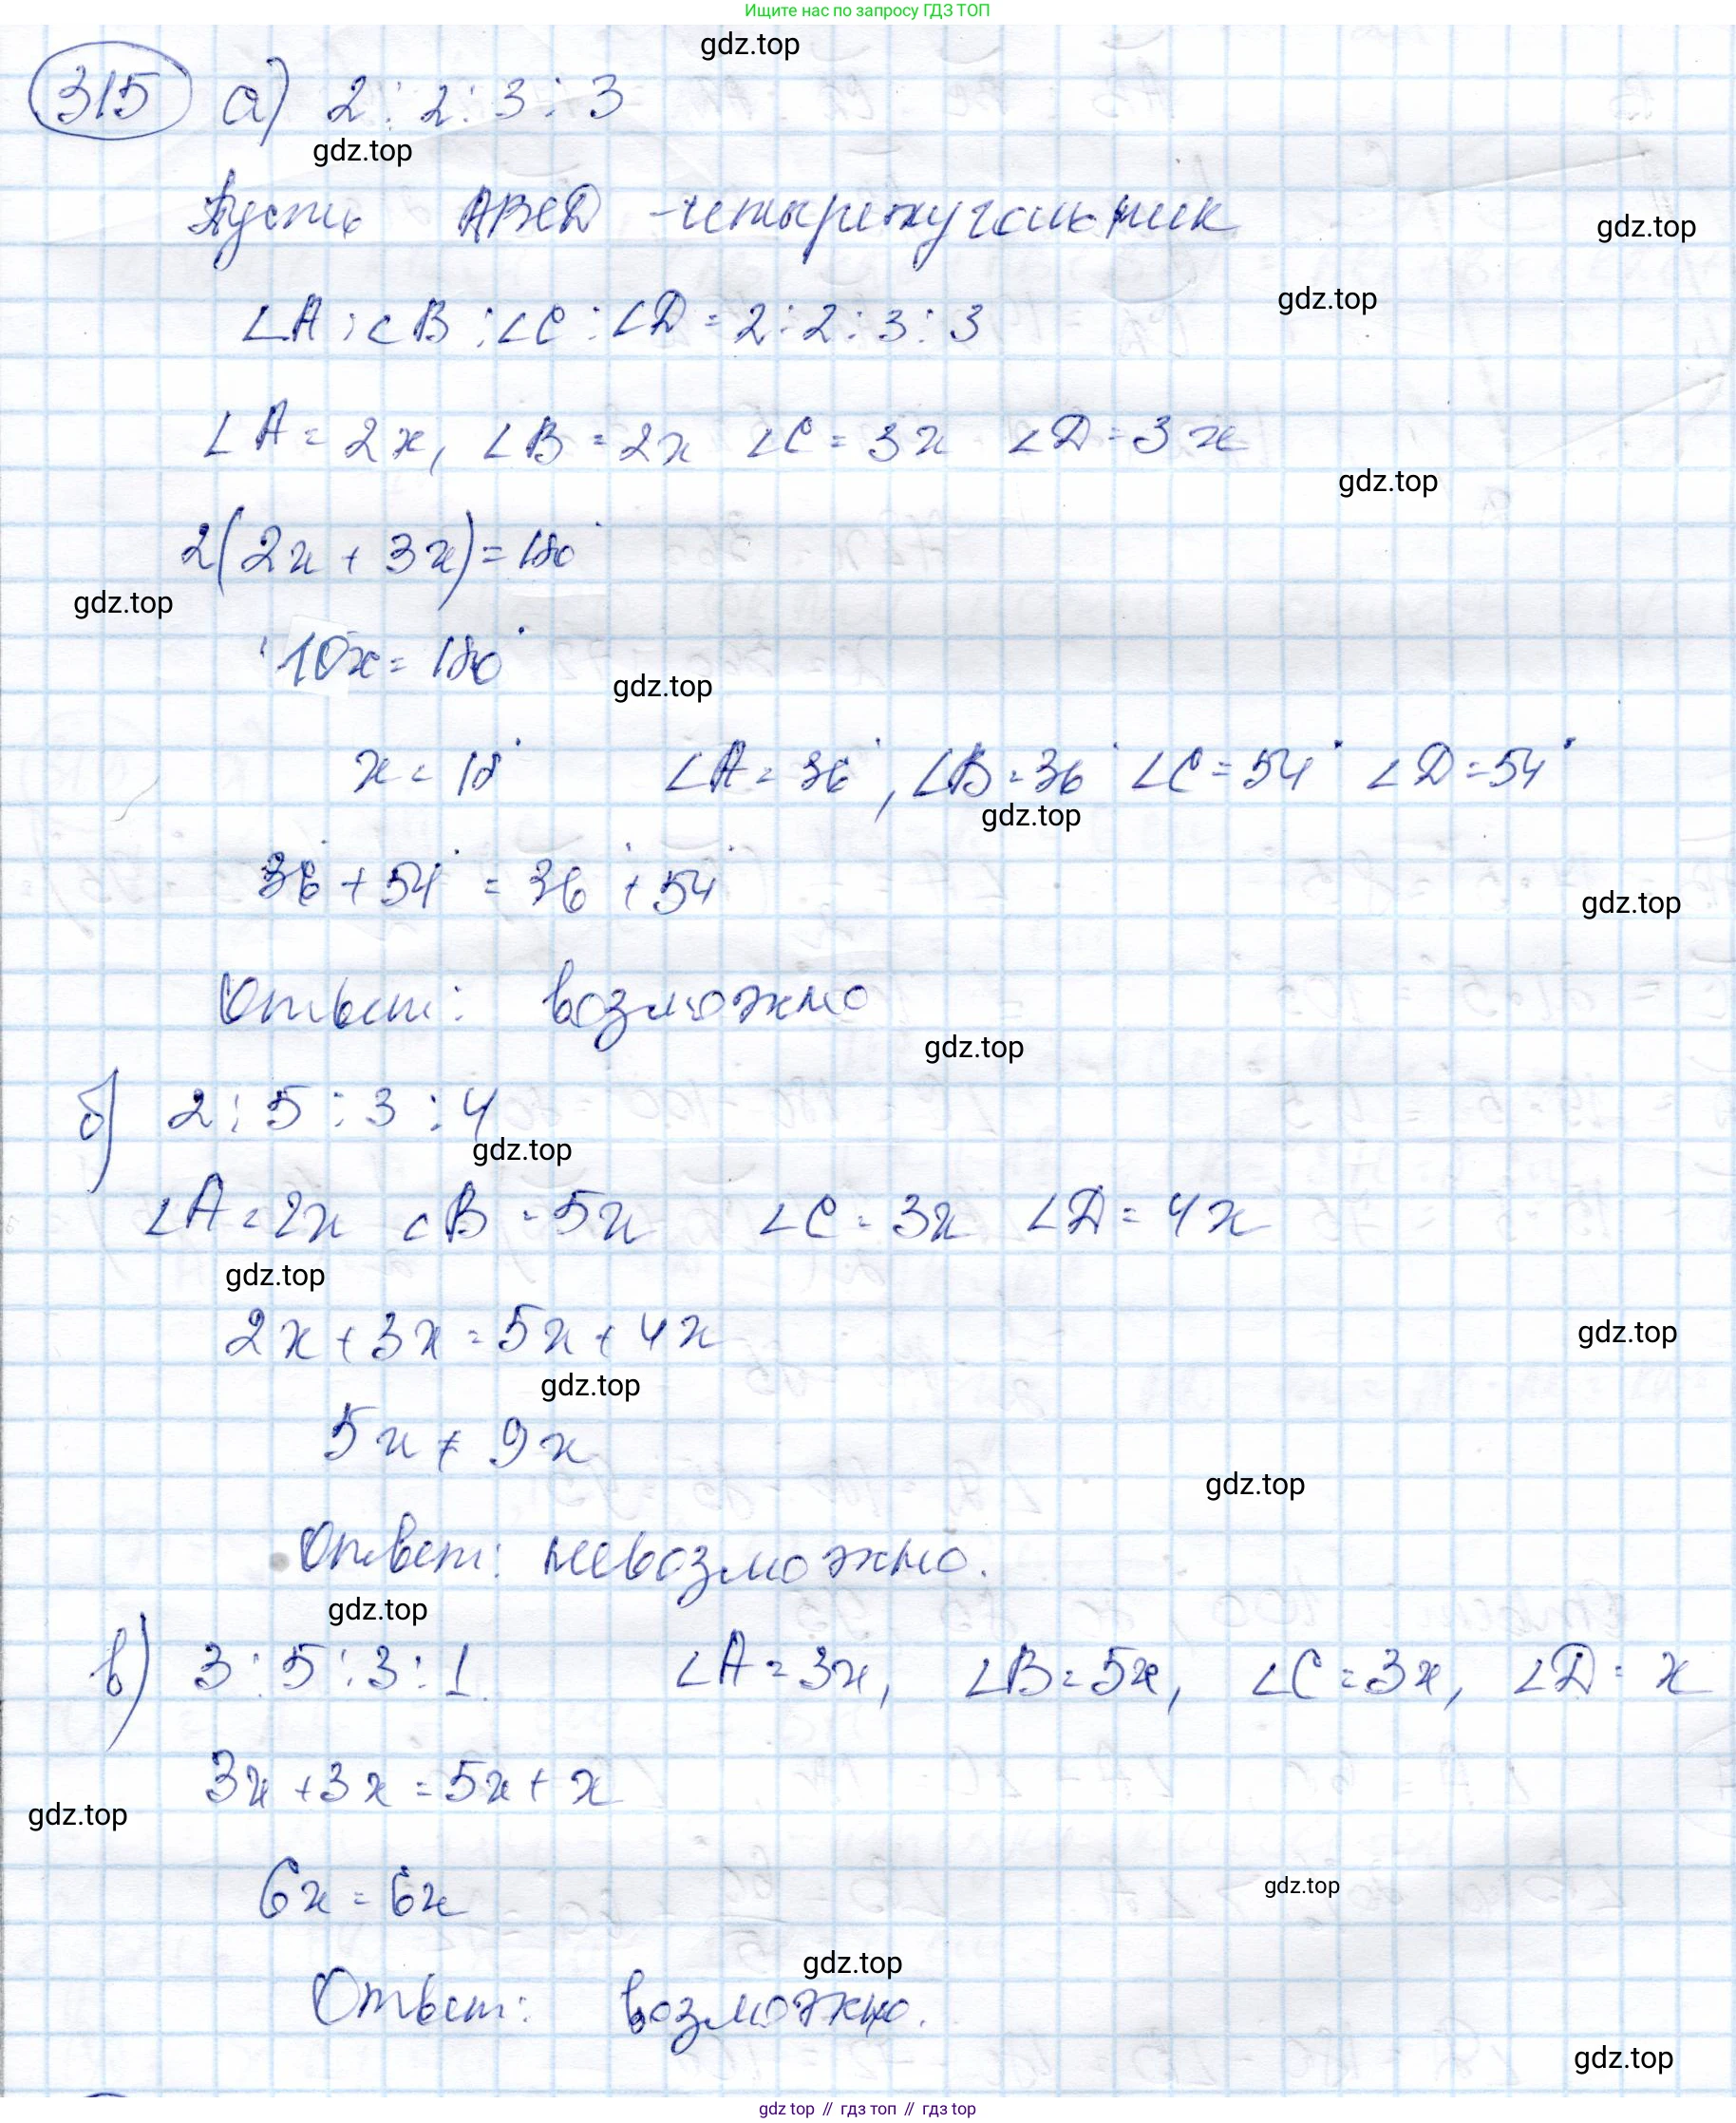 Ищите нас по запросу ГДЗ ТОП
gdz.top
315 а) 2 : 2 : 3 : 3
gdz.top
Пусть ABCD - четырехугольник
gdz.top
gdz.top
∠A : ∠B : ∠C : ∠D = 2 : 2 : 3 : 3
∠A = 2x, ∠B = 2x ∠C = 3x ∠D = 3x
gdz.top
2(2x + 3x) = 180°
gdz.top
10x = 180°
gdz.top
x = 18° ∠A = 36°, ∠B = 36° ∠C = 54° ∠D = 54°
gdz.top
36° + 54° = 36° + 54°
gdz.top
Ответ: возможно
gdz.top
б) 2 : 5 : 3 : 4
gdz.top
∠A = 2x ∠B = 5x ∠C = 3x ∠D = 4x
gdz.top
2x + 3x = 5x + 4x
gdz.top
gdz.top
5x ≠ 9x
gdz.top
Ответ: невозможно.
gdz.top
в) 3 : 5 : 3 : 1. ∠A = 3x, ∠B = 5x, ∠C = 3x, ∠D = x
3x + 3x = 5x + x
gdz.top
6x = 6x
gdz.top
gdz.top
Ответ: возможно.
gdz.top
gdz top // гдз топ // гдз top